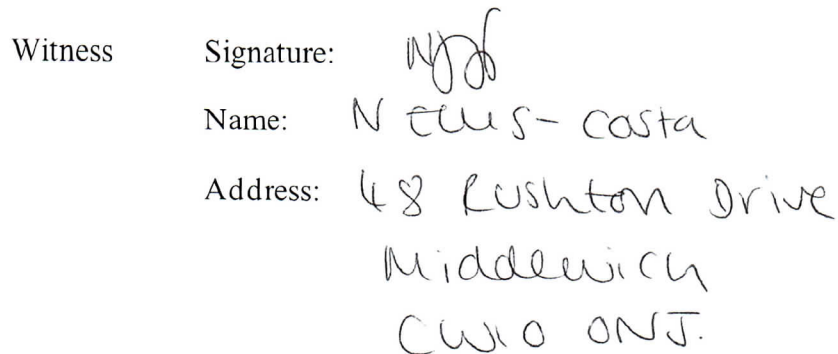 Witness Signature:
Name: N Ellis-Costa
Address: 48 Rushton Drive
Middlewich
CW10 0NJ.